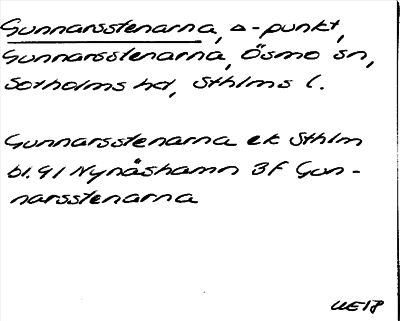 Gunnarsstenarna, △-punkt,
Gunnarsstenarna, Ösmo sn,
Sotholms hd, Sthlms l.
Gunnarsstenarna ek Sthlm
bl. 91 Nynäshamn 3f Gun-
narsstenarna
UE18